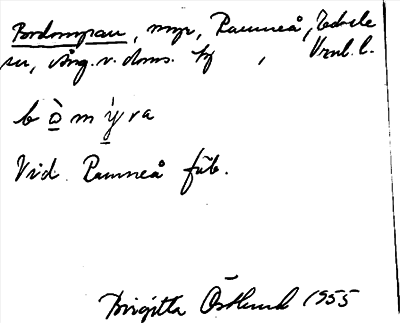 Bodmyran, myr, Ramneå, Edsele
sn, Ång. v. doms. hf , Vznl. l.
b ò m ý r a
Vid Ramneå fäb.
Birgitta Östlund 1955